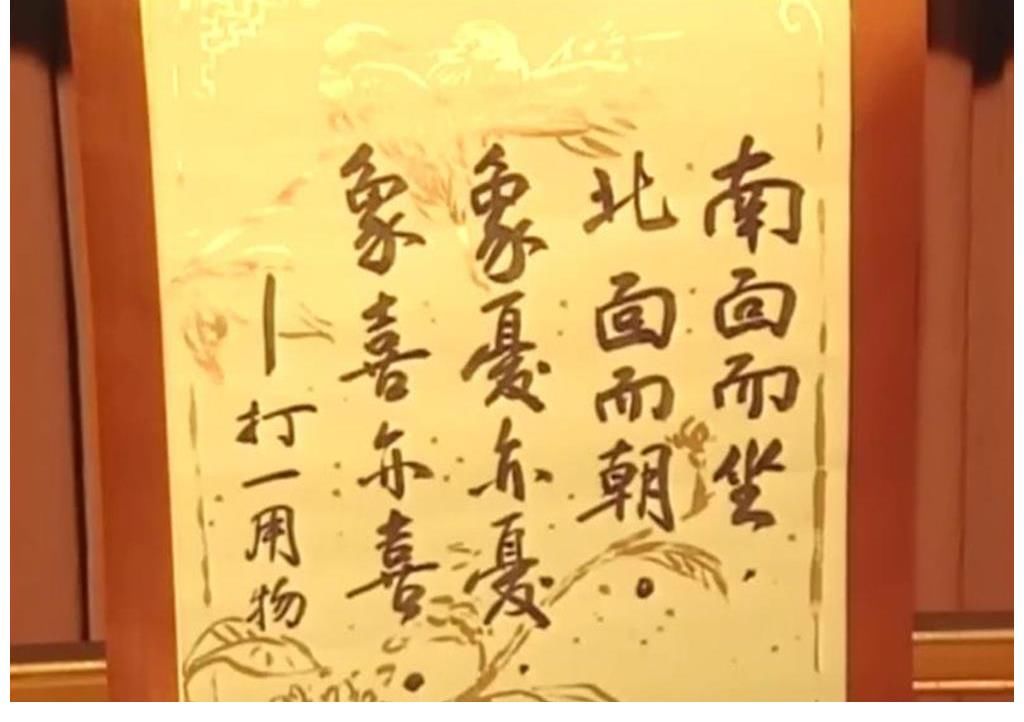 南面而坐
北面而朝
象憂亦憂
象喜亦喜
—打一用物